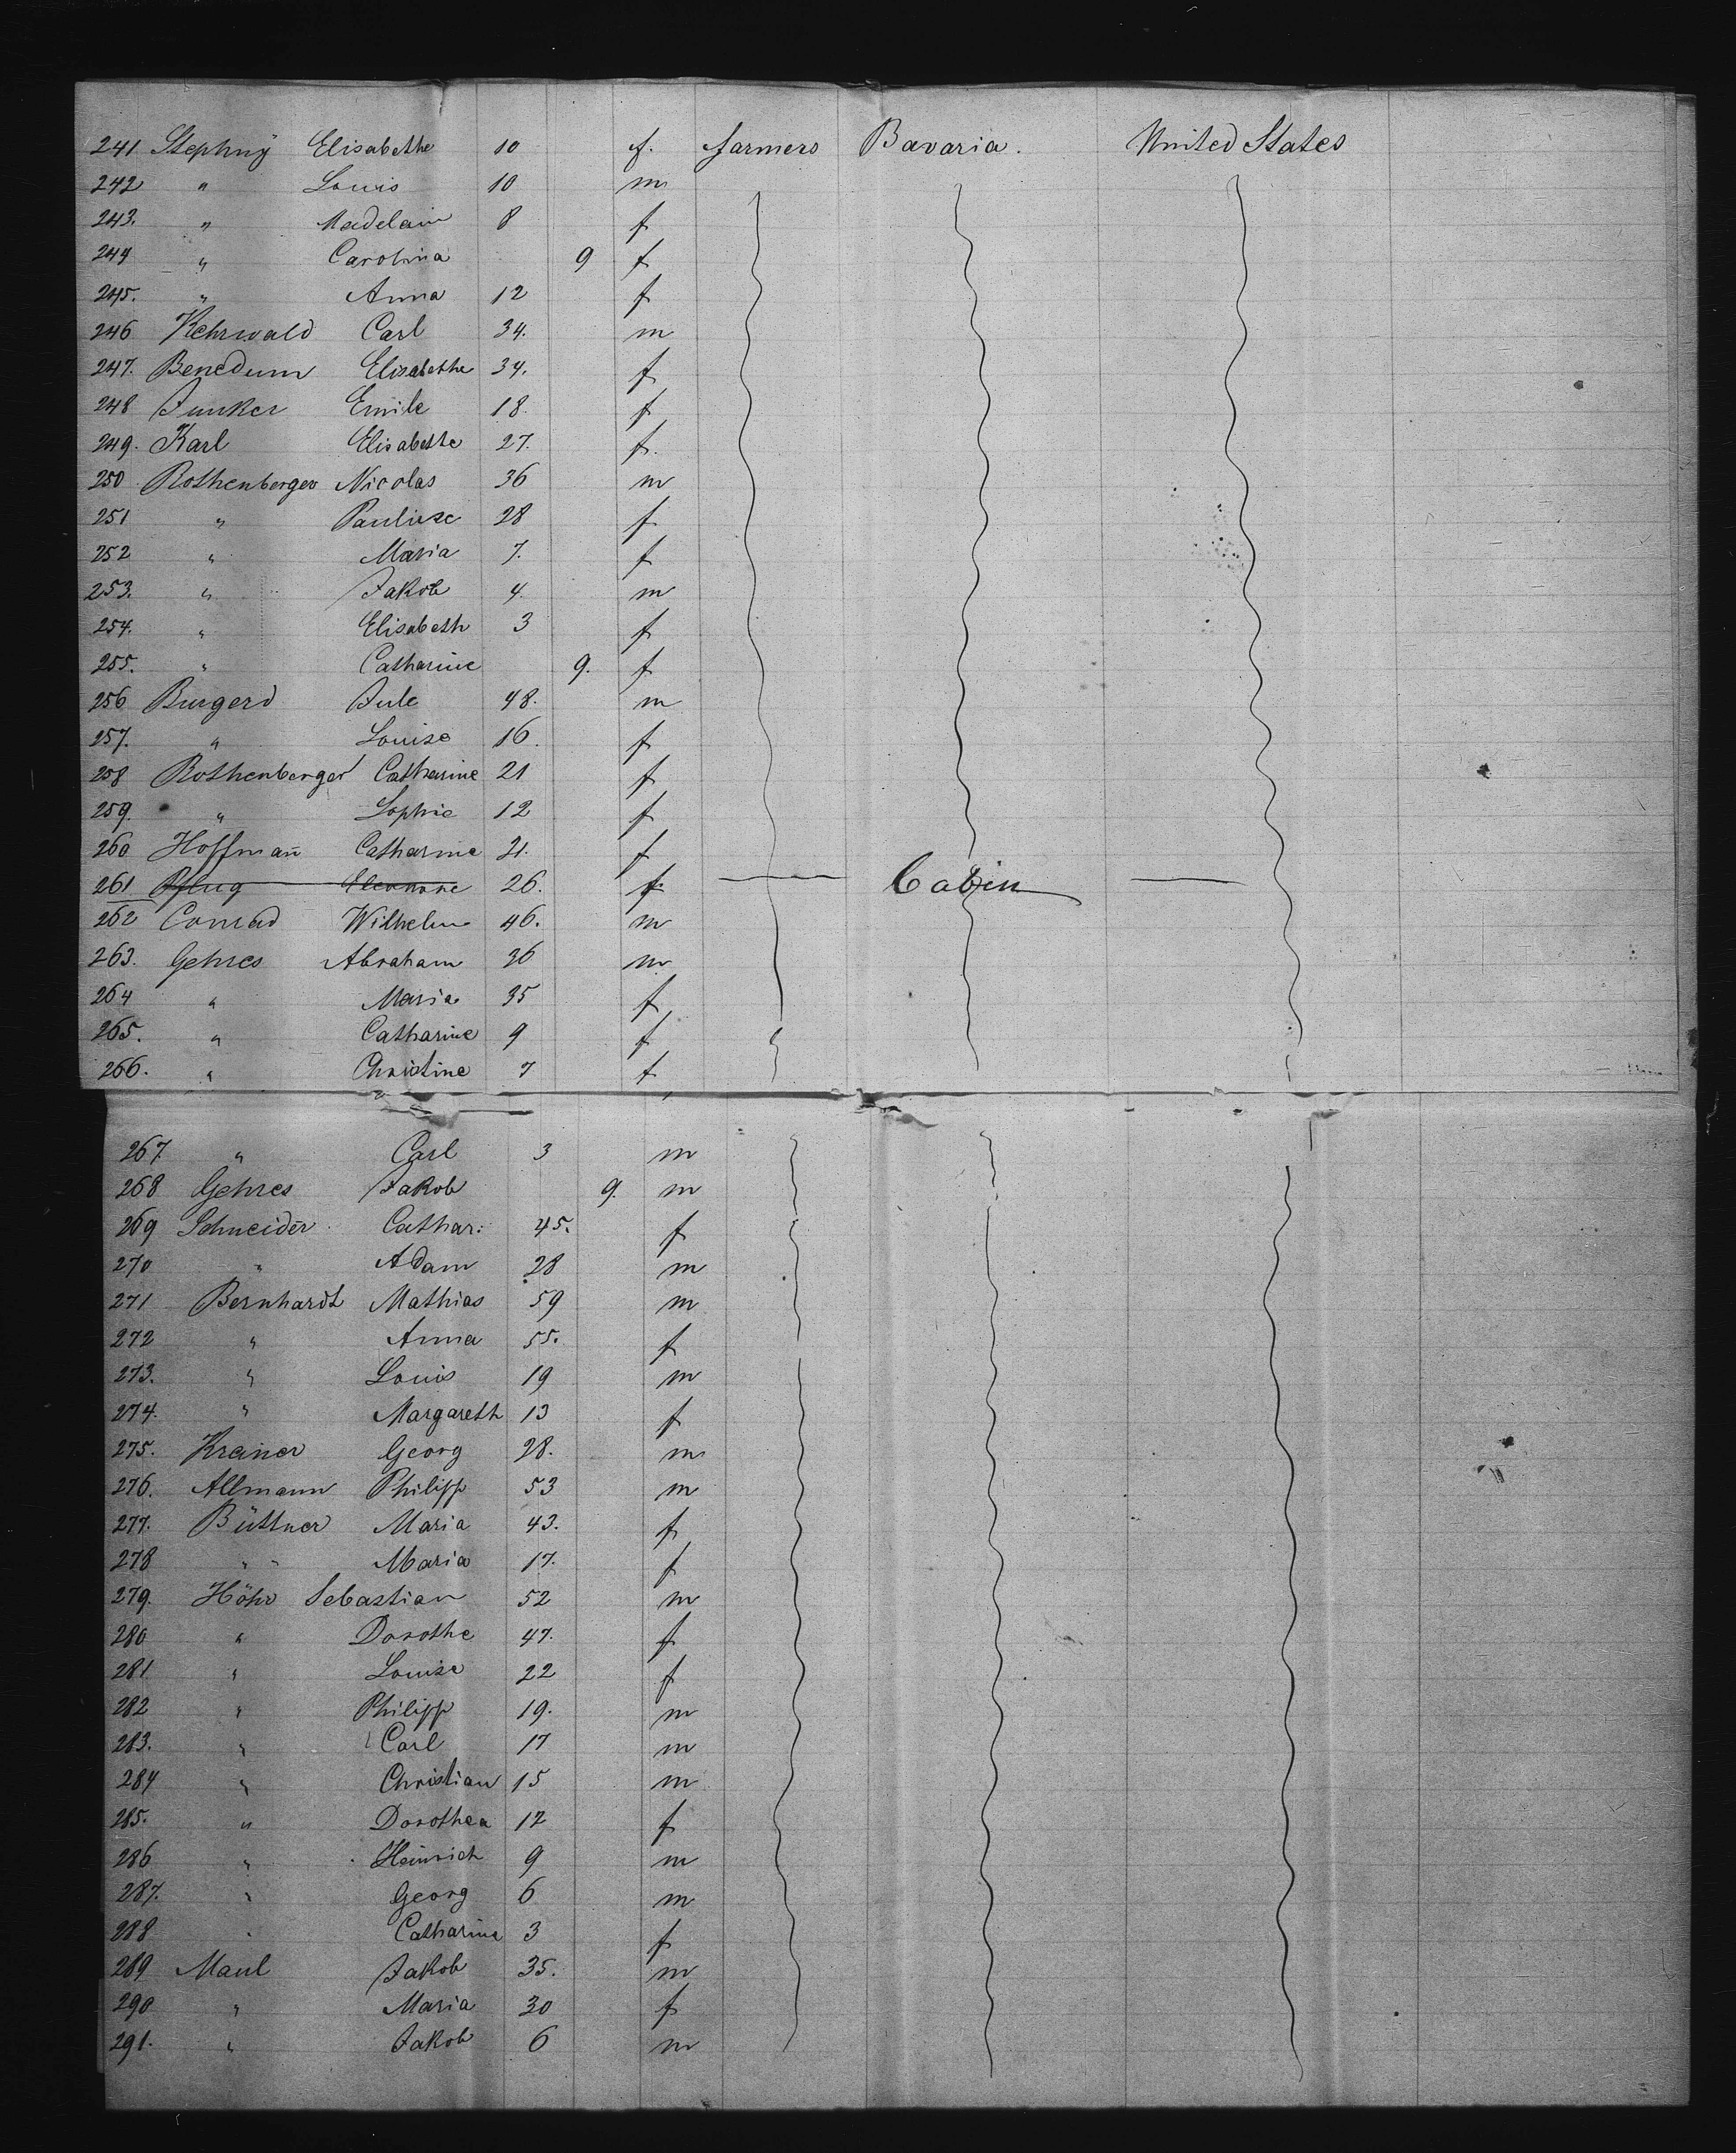 241 Stephny Elisabethe 10 f. farmers Bavaria. United States
242 " Louis 10 m
243. " Madelain 8 f
244 " Carolina 9 f
245. " Anna 12 f
246 Kehrwald Carl 34. m
247. Benedum Elisabethe 34. f
248 Junker Emile 18. f
249. Karl Elisabethe 27. f.
250 Rothenberger Nicolas 36 m
251 " Pauliese 28 f
252 " Maria 7. f
253. " Jakob 4. m
254. " Elisabeth 3 f
255. " Catharine 9. f
256 Burgerd Jule 48. m
257. " Louise 16. f
258 Rothenberger Catharine 21 f
259. " Sophie 12 f
260 Hoffmañ Catharine 21. f
261 Pflug Eleonore 26. f Cabin
262 Conrad Wilhelm 46. m
263. Gehres Abraham 36 m
264 " Maria 35 f
265. " Catharine 9 f
266. " Christine 7 f
267. " Carl 3 m
268 Gehres Jakob 9. m
269 Schneider Cathar: 45. f
270 " Adam 28 m
271 Bernhardt Mathias 59 m
272 " Anna 55. f
273. " Louis 19 m
274. " Margareth 13 f
275. Kreiner Georg 28. m
276. Allmann Philipp 53 m
277. Büttner Maria 43. f
278 " " Maria 17. f
279. Höhr Sebastian 52 m
280 " Dorothe 47. f
281 " Louise 22 f
282 " Philipp 19. m
283. " Carl 17 m
284 " Christian 15 m
285. " Dorothea 12 f
286 " Heinrich 9 m
287. " Georg 6 m
288 " Catharina 3 f
289 Maul Jakob 35. m
290 " Maria 30 f
291. " Jakob 6 m